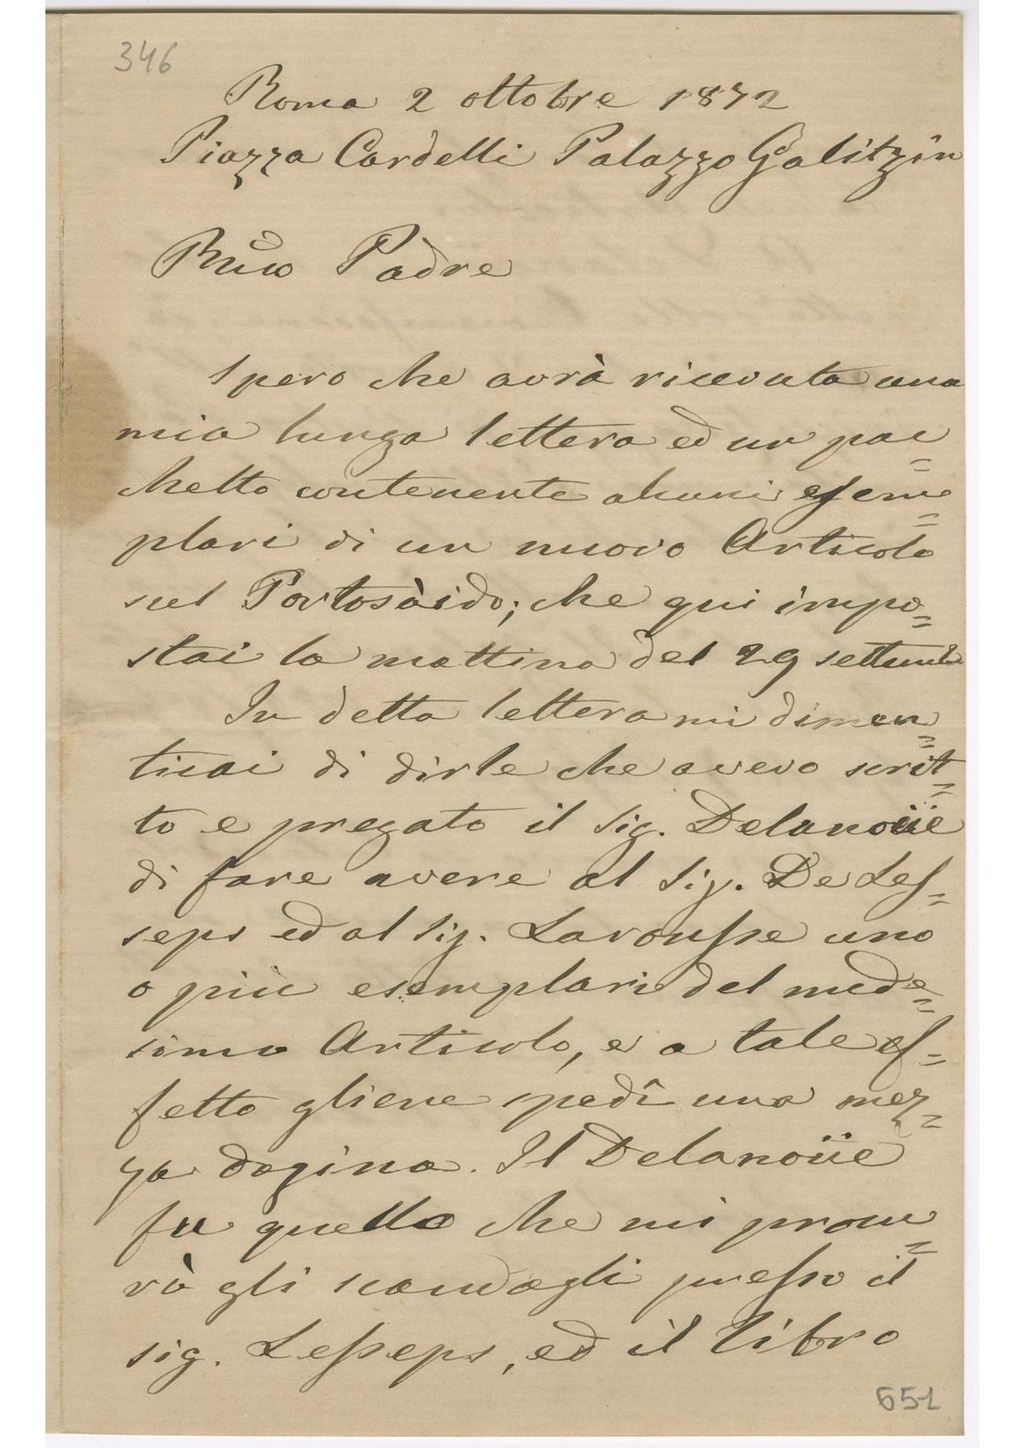 346
Roma 2 ottobre 1872
Piazza Cardelli Palazzo Galitzin
Rmo Padre
Spero che avrà ricevuta una
mia lunga lettera ed un pac=
chetto contenente alcuni esem=
plari di un nuovo Articolo
sul Portosàido; che qui impo=
stai la mattina del 29 settemb
In detta lettera mi dimen=
ticai di dirle che avevo scrit=
to e pregato il sig. Delanoüe
di fare avere al sig. De Les=
seps ed al sig. Larousse uno
o più esemplari del mede=
simo Articolo, e a tale ef=
fetto gliene spedî una mez=
za dozina. Il Delanoüe
fu quello che mi procu=
rò gli scandagli presso il
sig. Lesseps, ed il libro
651